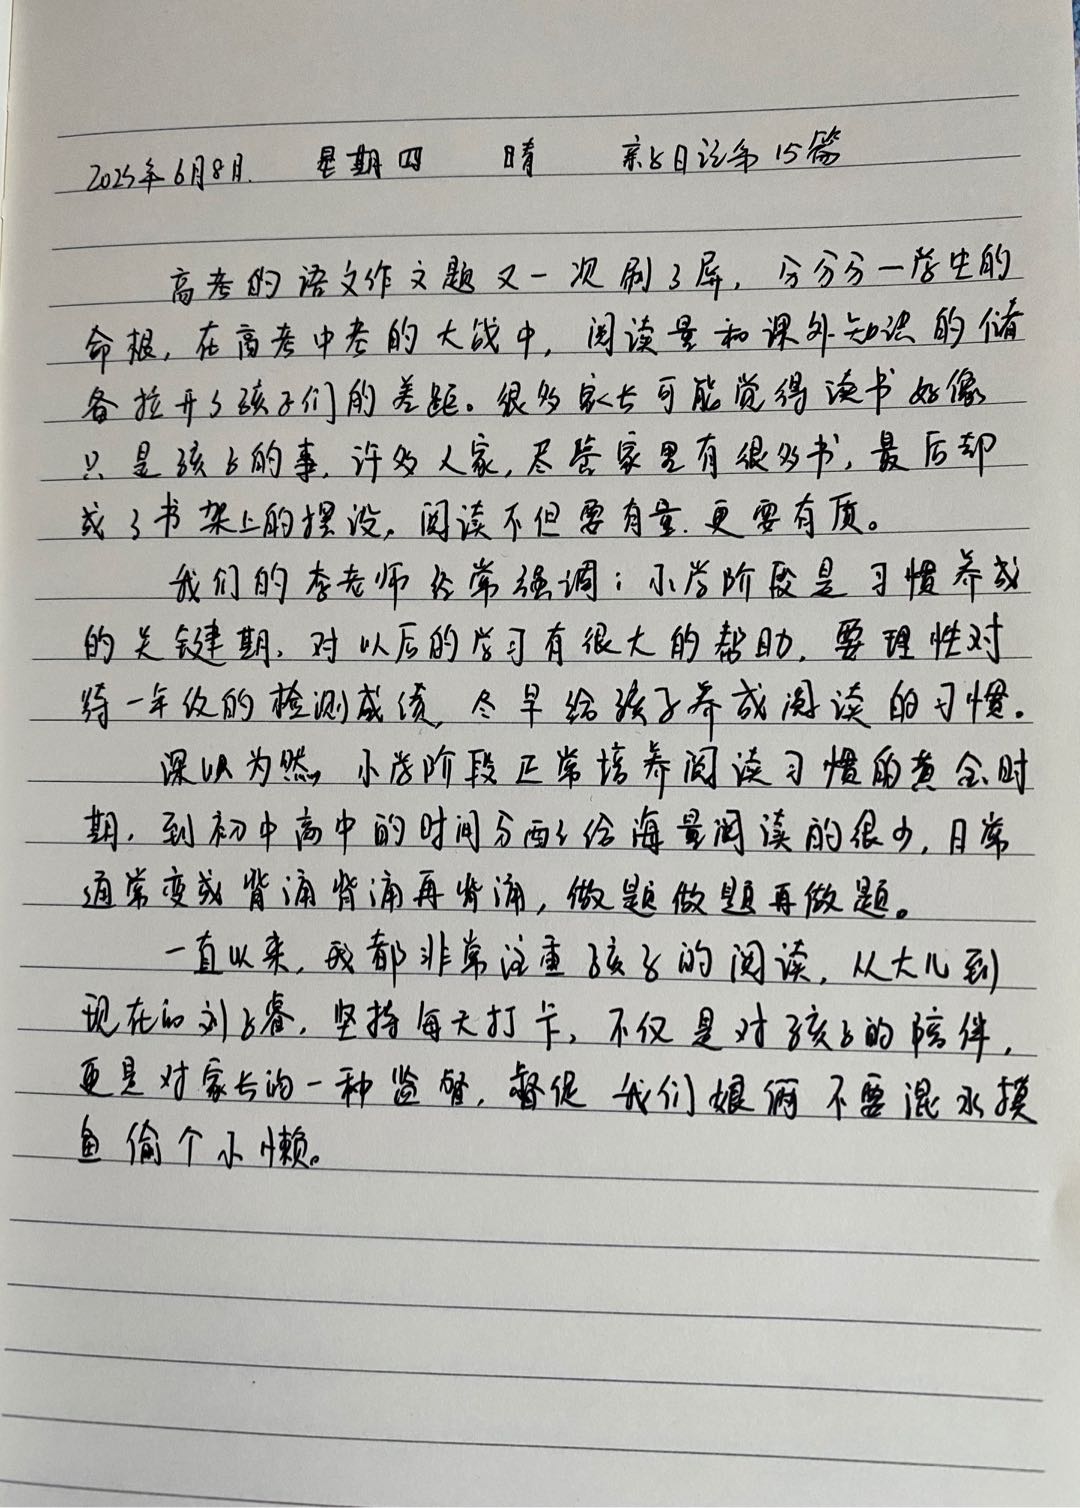 2023年6月8日. 星期四 晴 亲子日记第15篇
高考的语文作文题又一次刷了屏，分分分一学生的
命根，在高考中考的大战中，阅读量和课外知识的储
备拉开了孩子们的差距。很多家长可能觉得读书好像
只是孩子的事，许多人家，尽管家里有很多书，最后却
成了书架上的摆设。阅读不但要有量.更要有质。
我们的李老师经常强调：小学阶段是习惯养成
的关键期，对以后的学习有很大的帮助，要理性对
待一年级的检测成绩，尽早给孩子养成阅读的习惯。
深以为然，小学阶段正常培养阅读习惯的黄金时
期，到初中高中的时间分配给海量阅读的很少，日常
通常变成背诵背诵再背诵，做题做题再做题。
一直以来，我都非常注重孩子的阅读，从大儿到
现在的刘子睿，坚持每天打卡，不仅是对孩子的陪伴，
更是对家长的一种监督，督促我们娘俩不要混水摸
鱼偷个小懒。